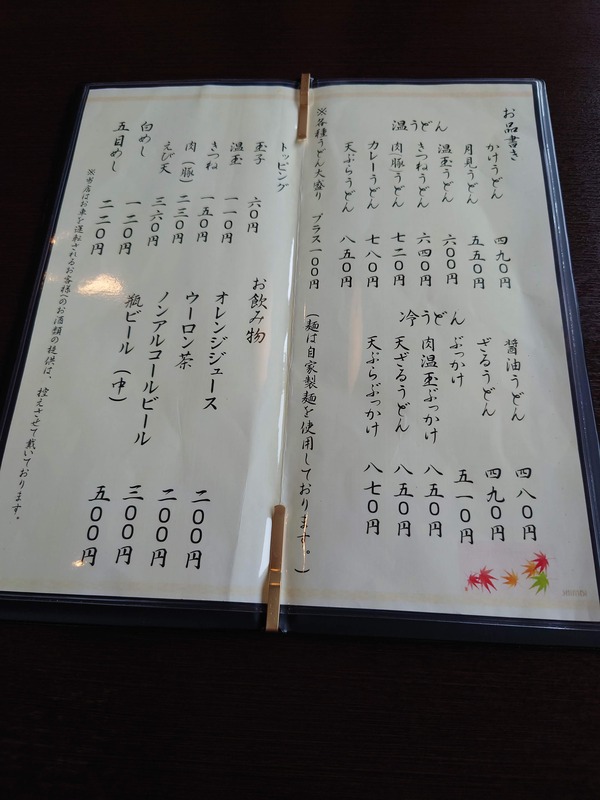 お品書き
温うどん
かけうどん 四九〇円
月見うどん 五五〇円
温玉うどん 六〇〇円
きつねうどん 六四〇円
肉(豚)うどん 七二〇円
カレーうどん 七八〇円
天ぷらうどん 八五〇円
冷うどん
醤油うどん 四八〇円
ざるうどん 四九〇円
ぶっかけ 五一〇円
肉温玉ぶっかけ 八五〇円
天ざるうどん 八五〇円
天ぷらぶっかけ 八七〇円
※各種うどん大盛り プラス一〇〇円 (麺は自家製麺を使用しております。)
トッピング
玉子 六〇円
温玉 一一〇円
きつね 一五〇円
肉(豚) 二三〇円
えび天 三六〇円
白めし 一二〇円
五目めし 二二〇円
お飲み物
オレンジジュース 二〇〇円
ウーロン茶 二〇〇円
ノンアルコールビール 三〇〇円
瓶ビール(中) 五〇〇円
※当店はお車を運転されるお客様へのお酒類の提供は、控えさせて戴いております。